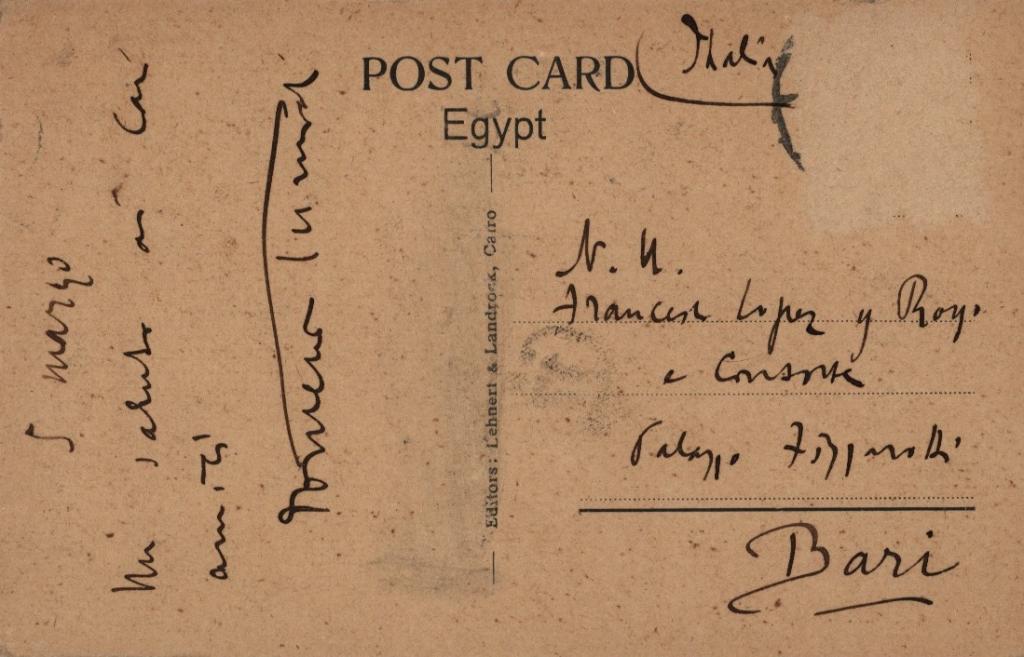 5 marzo
Un saluto ai cari
amici
POST CARD
Egypt
Italia
Editors: Lehnert & Landrock, Cairo
N. H.
Francesco Lopez y Royo
e Consorte
Palazzo Fizzarotti
Bari